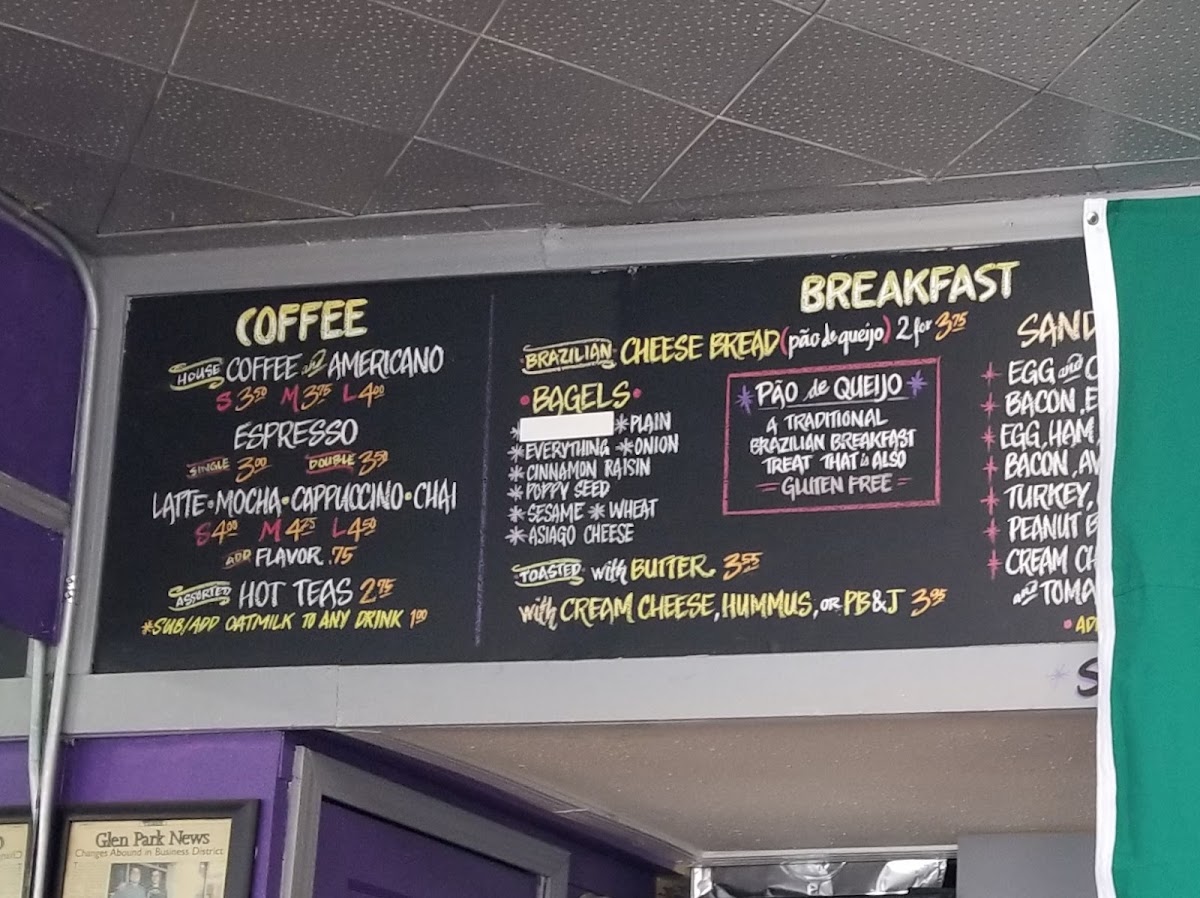 COFFEE
HOUSE COFFEE and AMERICANO
S 3.50 M 3.75 L 4.00
ESPRESSO
SINGLE 3.00 DOUBLE 3.50
LATTE • MOCHA • CAPPUCCINO • CHAI
S 4.00 M 4.25 L 4.50
ADD FLAVOR .75
ASSORTED HOT TEAS 2.75
*SUB/ADD OATMILK TO ANY DRINK 1.00
BREAKFAST
BRAZILIAN CHEESE BREAD (pão de queijo) 2 for 3.75
• BAGELS •
* * PLAIN
* EVERYTHING * ONION
* CINNAMON RAISIN
* POPPY SEED
* SESAME * WHEAT
* ASIAGO CHEESE
* PÃO de QUEIJO *
A TRADITIONAL
BRAZILIAN BREAKFAST
TREAT THAT is ALSO
GLUTEN FREE
TOASTED with BUTTER 3.55
with CREAM CHEESE, HUMMUS, OR PB&J 3.95
SAND
EGG and C
BACON, E
EGG, HAM,
BACON, AV
TURKEY,
PEANUT B
CREAM CH
and TOMA
• AD
* S
Glen Park News
Changes Abound in Business District